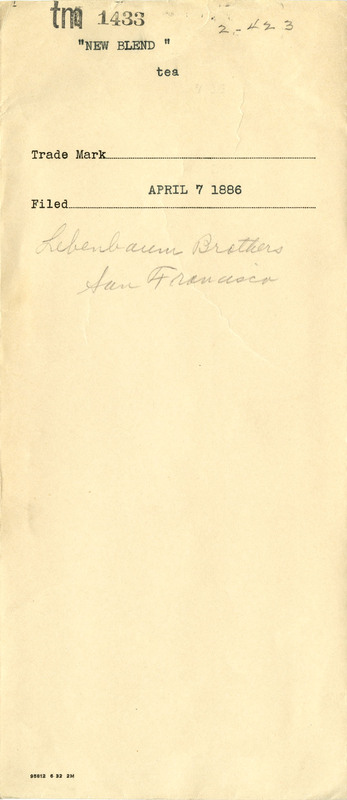 tm 1433
2-423
"NEW BLEND "
tea
Trade Mark
APRIL 7 1886
Filed
Lebenbaum Brothers
San Francisco
95812 6-32 2M